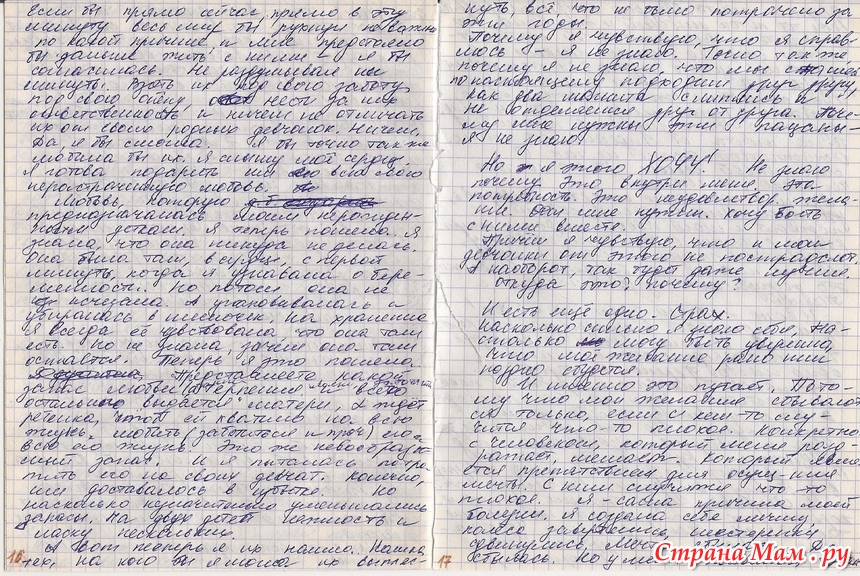 Если бы прямо сейчас, прямо в эту
минуту весь мир бы рухнул не важно
по какой причине, и мне предстояло
бы дальше жить с ними – я бы
согласилась. Не раздумывая ни
минуты. Взять их под свою заботу,
под свою опеку, нести за них
ответственность и ничем не отличать
их от своих родных девчонок. Ничем.
Да, я бы смогла. Я бы точно так же
любила бы их. Я слышу моё сердце.
Я готова подарить им всю свою
нерастраченную любовь.
Любовь, которую
предназначалась моим нерожден-
ным детям. Я теперь поняла. Я
знала, что она никуда не делась.
Она была там, в сердце, с первой
минуты, когда я узнавала о бере-
менности. Но потом она не
исчезала. А упаковывалась и
убиралась в мешочек. На хранение
Я всегда её чувствовала, что она там
есть. Но не знала, зачем она там
остаётся. Теперь я это поняла.
Представляете какой
запас любви, терпения и
остального выдаётся матери,
ребенка, чтоб ей хватило на всю
жизнь. любить (заботится и проч) его
всю его жизнь. Это же невообрази-
мый запас. И я пыталась потра-
тить его на своих девчат. Конечно,
им доставалось в
насколько незначительно уменьшились
запасы. На двух детей нежность и
ласку нескольких.
А вот теперь я их нашла. Нашла
тех, на кого бы я могла их выплес-
16
нуть всё что не было потрачено за
эти годы.
Почему я чувствую, что я справ-
люсь – я не знаю. Точно так же
почему я не знаю, что мы
по настоящему подходим друг другу,
как два магнита слиплись и
не отделяемся друг от друга. Поче-
му мне нужны эти пацаны –
я не знаю.
Но я этого ХОЧУ! Не знаю
почему. Это внутри меня. Эта
потребность. Это неудовлетвор. жела-
ние. Они мне нужны. Хочу быть
с ними вместе.
Причём я чувствую, что и мои
девчонки от этого не пострадают.
А наоборот, так будет даже лучше.
Откуда это? Почему?
И есть ещё одно. Страх.
Насколько сильно я знаю себя, на-
столько могу быть уверена,
что моё желание рано или
поздно сбудется.
И именно это пугает. Пото-
му что мои желания сбывают-
ся только, если с кем-то слу-
чится что-то плохое. Конкретно
с человеком, который меня разд-
ражает, мешает. Который явля-
ется препятствием для осущ-ния
мечты. С ним случится что-то
плохое. Я – сама причина моей
болезни. Я создала себе мечту,
колесо завертелось, шестеренки
сдвинулись,
сбылась. Но у меня
17
Страна Мам.ру